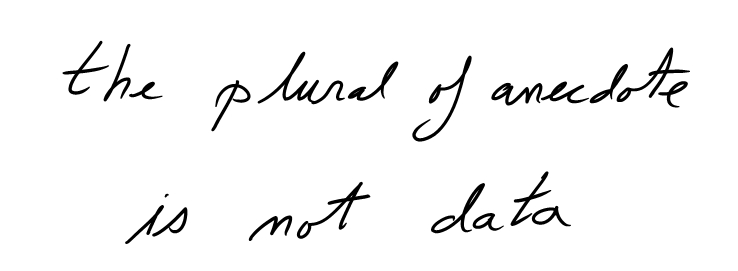 the plural of anecdote
is not data